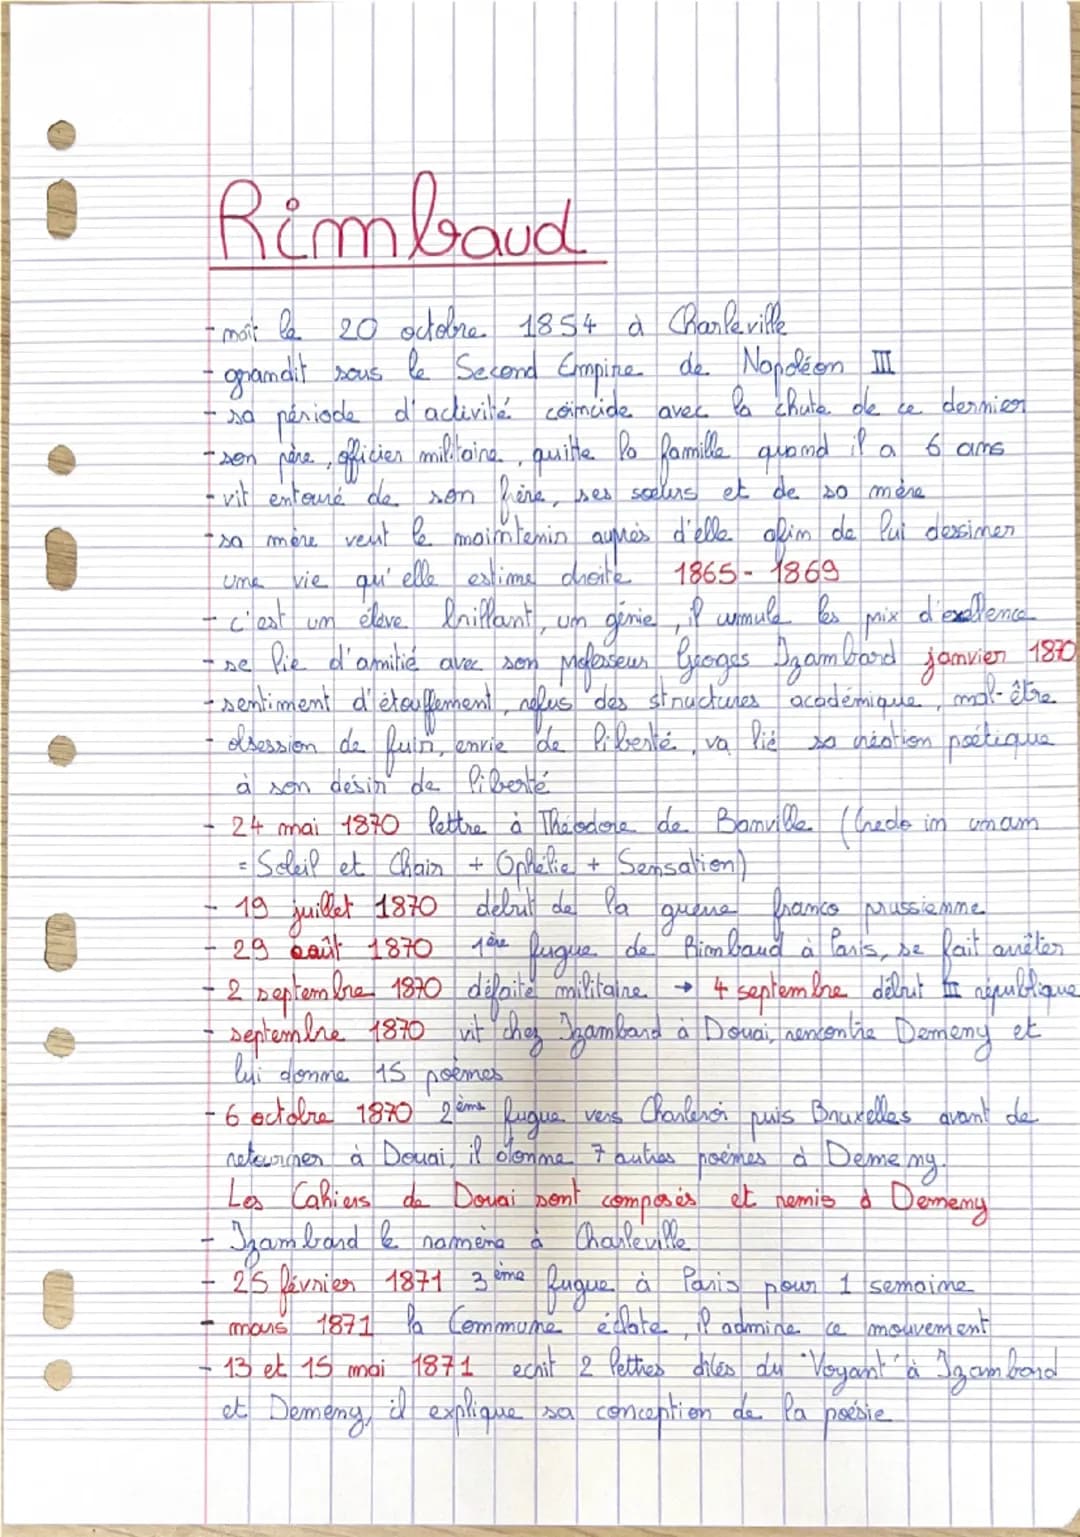 Rimbaud
- naît le 20 octobre 1854 à Charleville
- grandit sous le Second Empire de Napoléon III
- sa période d'activité coïncide avec la chute de ce dernier
- son père, officier militaire, quitte la famille quand il a 6 ans
- vit entouré de son frère, ses soeurs et de sa mère
- sa mère veut le maintenir auprès d'elle afin de lui dessiner
une vie qu'elle estime droite 1865 - 1869
- c'est un élève brillant, un génie, il cumule les prix d'exellence
- se lie d'amitié avec son professeur Georges Izambard janvier 1870
- sentiment d'étouffement, refus des structures académique, mal-être
- obsession de fuir, envie de liberté, va lié sa création poétique
à son désir de liberté
- 24 mai 1870 lettre à Théodore de Banville (Credo in unam
= Soleil et Chair + Ophélie + Sensation)
- 19 juillet 1870 debut de la guerre franco prussienne
- 29 août 1870 1ère fugue de Rimbaud à Paris, se fait arrêter
- 2 septembre 1870 défaite militaire → 4 septembre début III république
- septembre 1870 vit chez Izambard à Douai, rencontre Demeny et
lui donne 15 poèmes
- 6 octobre 1870 2ème fugue vers Charleroi puis Bruxelles avant de
retourner à Douai, il donne 7 autres poèmes à Demeny.
Les Cahiers de Douai sont composés et remis à Demeny
- Izambard le ramène à Charleville
- 25 février 1871 3ème fugue à Paris pour 1 semaine
- mars 1871 la Commune éclate, il admire ce mouvement
- 13 et 15 mai 1871 ecrit 2 lettres dites du "Voyant" à Izambard
et Demeny, il explique sa conception de la poésie